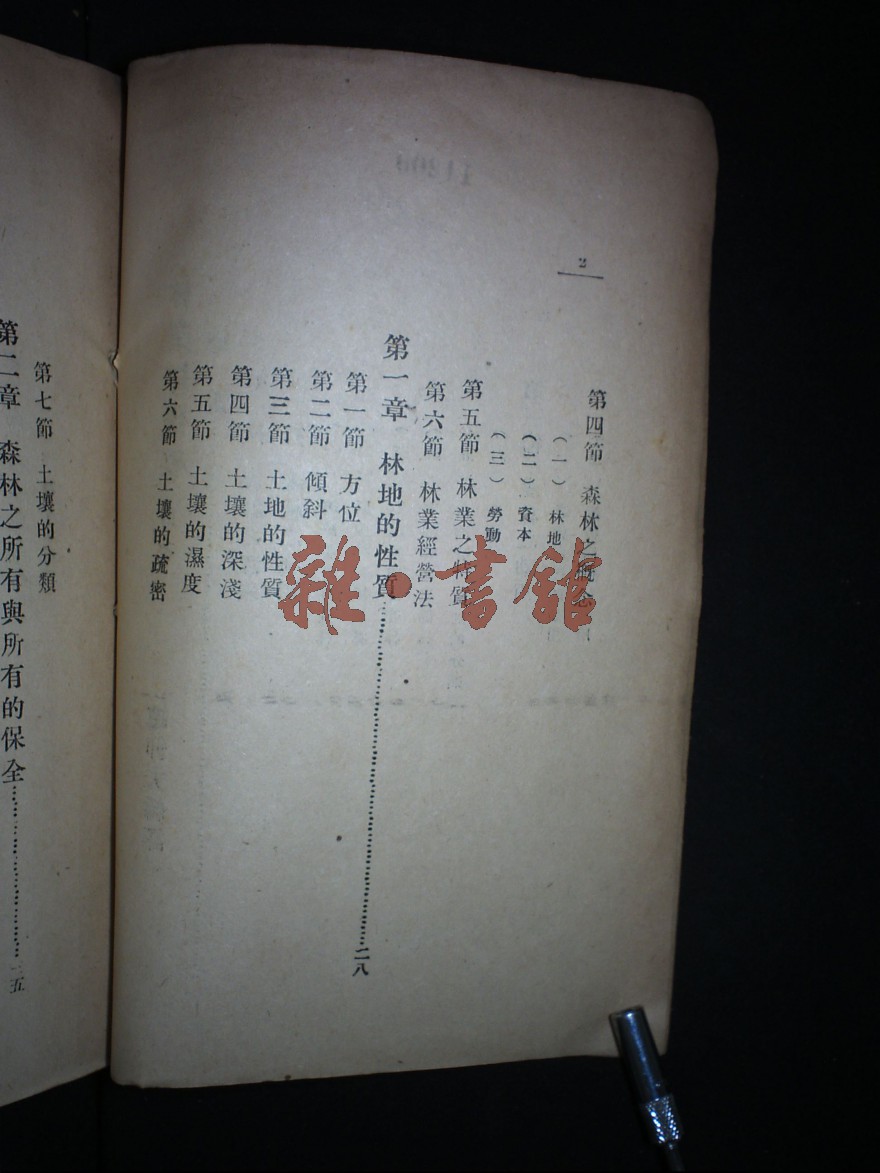 2
第四節 森林之概念
(一) 林地
(二) 資本
(三) 勞動
第五節 林業之特質
第六節 林業經營法
第一章 林地的性質……………………二八
第一節 方位
第二節 傾斜
第三節 土地的性質
第四節 土壤的深淺
第五節 土壤的濕度
第六節 土壤的疏密
第七節 土壤的分類
第二章 森林之所有與所有的保全……………………五
雜·書館